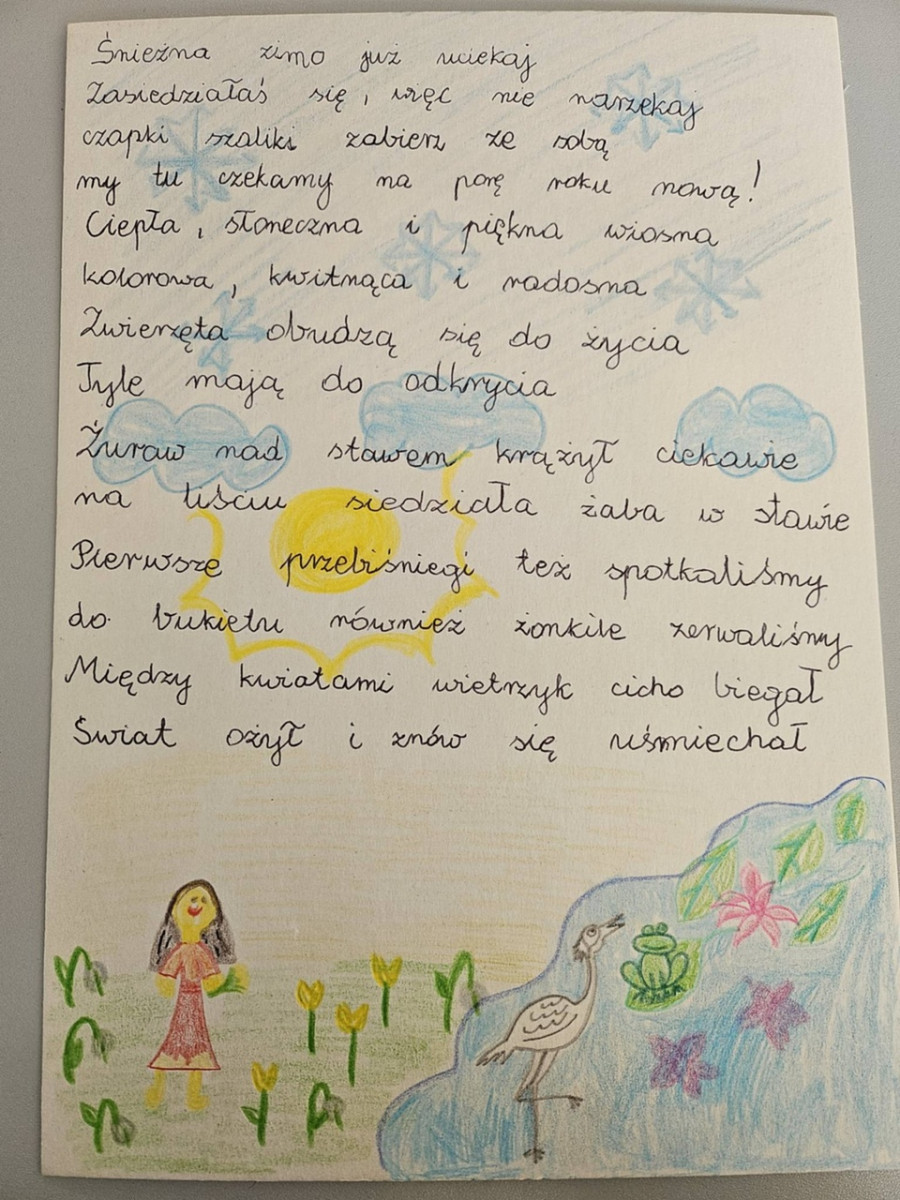 Śnieżna zimo już uciekaj
Zasiedziałaś się, więc nie narzekaj
czapki szaliki zabierz ze sobą
my tu czekamy na porę roku nową!
Ciepła, słoneczna i piękna wiosna
kolorowa, kwitnąca i radosna
Zwierzęta obudzą się do życia
Tyle mają do odkrycia
Żuraw nad stawem krążył ciekawie
na liściu siedziała żaba w stawie
Pierwsze przebiśniegi też spotkaliśmy
do bukietu również żonkile zerwaliśmy
Między kwiatami wietrzyk cicho biegał
Świat ożył i znów się uśmiechał